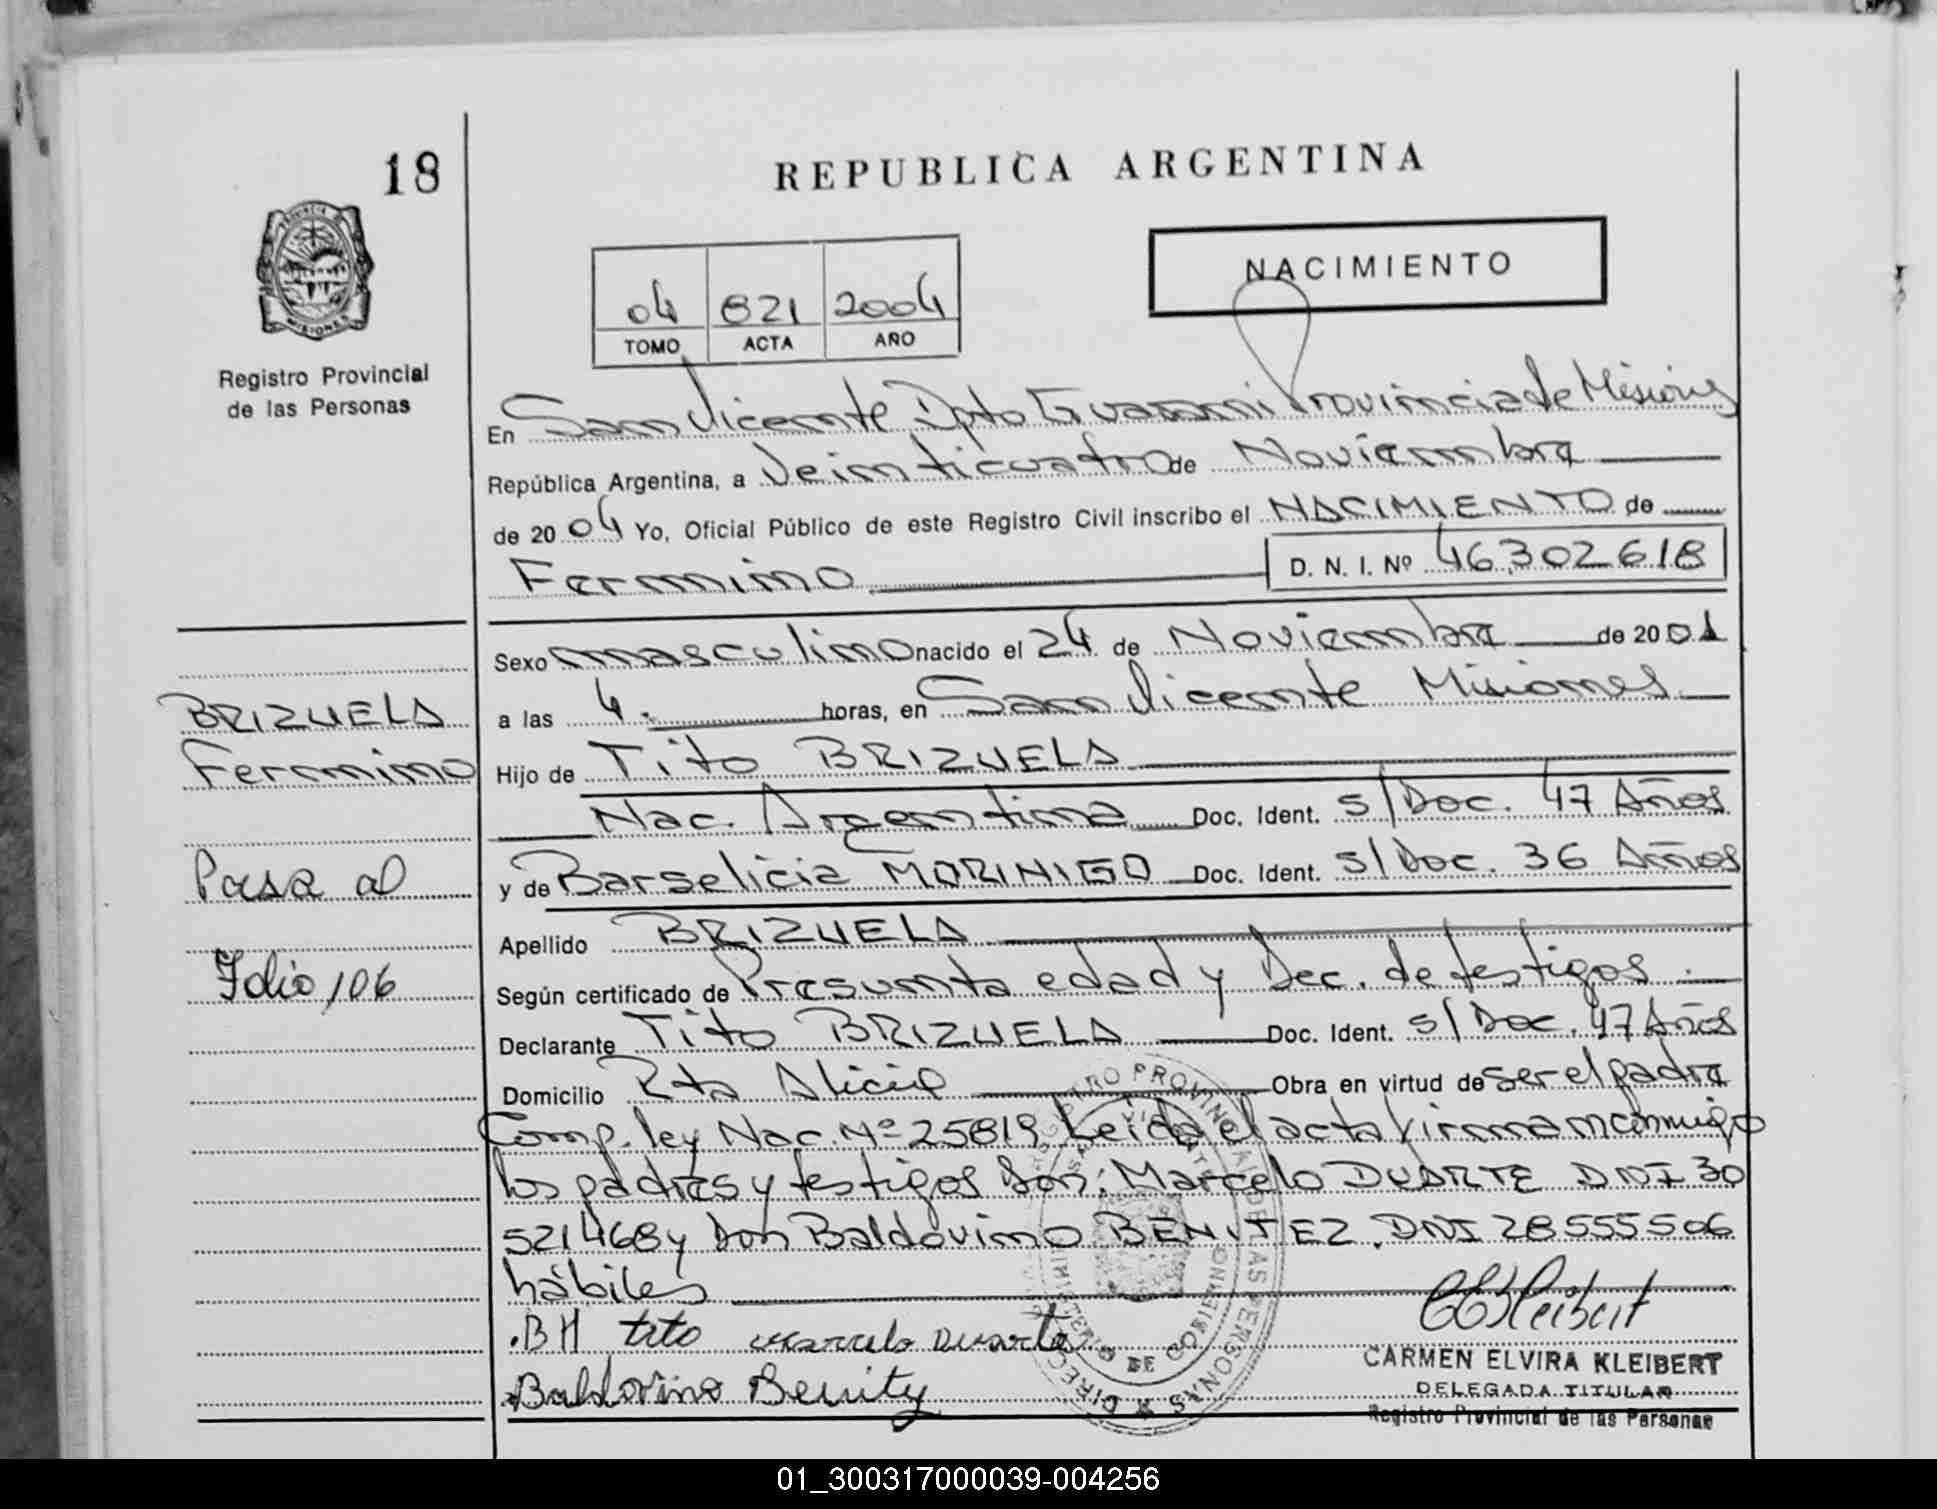 18
REPUBLICA ARGENTINA
NACIMIENTO
04 821 2004
TOMO ACTA AÑO
PROVINCIA DE
MISIONES
Registro Provincial
de las Personas
En San Vicente Dpto Guarani Provincia de Misiones
República Argentina, a Veinticuatro de Noviembre
de 2004 Yo, Oficial Público de este Registro Civil inscribo el NACIMIENTO de
Fermino D. N. I. Nº 46.302.618
Sexo masculino nacido el 24 de Noviembre de 2001
a las 4. horas, en San Vicente Misiones
BRIZUELA
Fermino
Hijo de Tito BRIZUELA
Nac. Argentina Doc. Ident. s/Doc. 47 Años
Pasa al
y de Barselicia MORINIGO Doc. Ident. s/Doc. 36 Años
Apellido BRIZUELA
Folio 106
Según certificado de Presunta edad y Dec. de testigos
Declarante Tito BRIZUELA Doc. Ident. s/Doc. 47 Años
Domicilio Rta Alicia Obra en virtud de ser el padre
Comp. ley Nac. Nº 25819 Leida el acta firman conmigo
los padres y testigos Don: Marcelo DUARTE DNI 30
521468 y Don Baldovino BENITEZ. DNI 28555506
hábiles
.BM tito marcelo Duarte
Baldovino Benitez
CEKleibert
CARMEN ELVIRA KLEIBERT
DELEGADA TITULAR
Registro Provincial de las Personas
MINISTERIO DE GOBIERNO
01_300317000039-004256